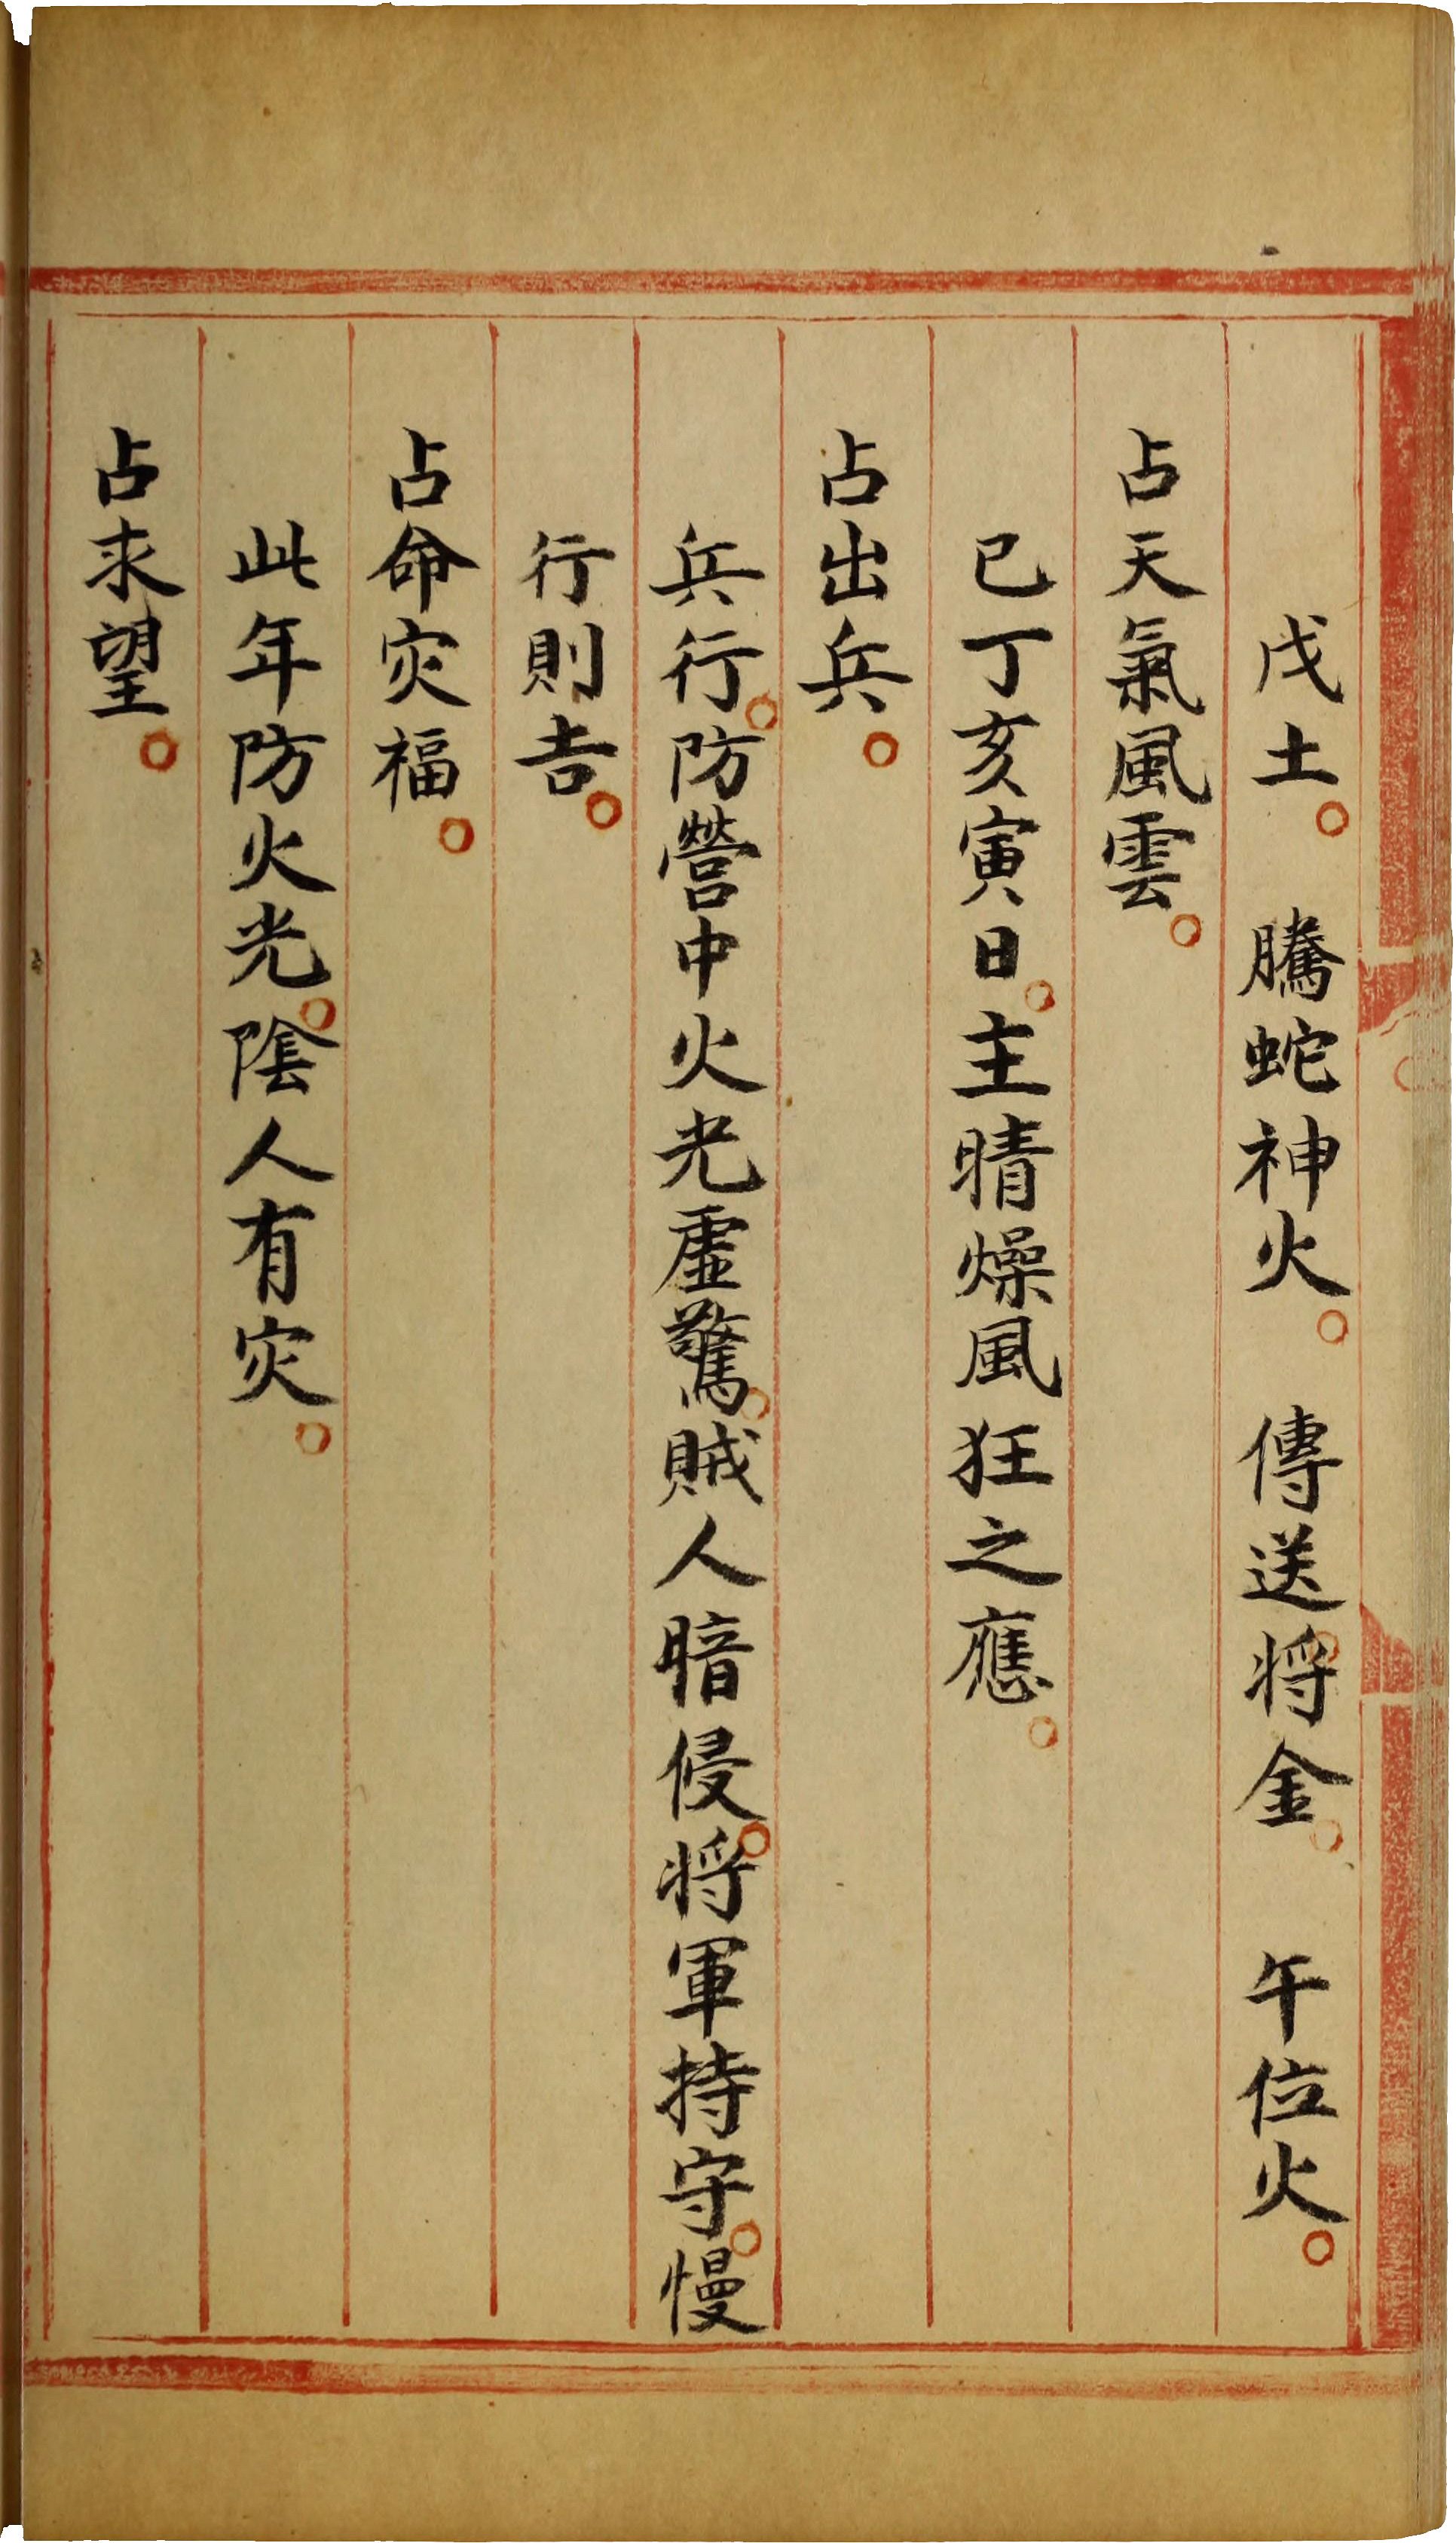 戊土。　騰蛇神火。　傳送。將金。　午位火。
占天氣風雲。
巳丁亥寅日。主晴燥風狂之應。
占出兵。
兵行。防營中火光虛驚。賊人暗侵。將軍持守。慢
行則吉。
占命灾福。
此年防火光。陰人有灾。
占求望。